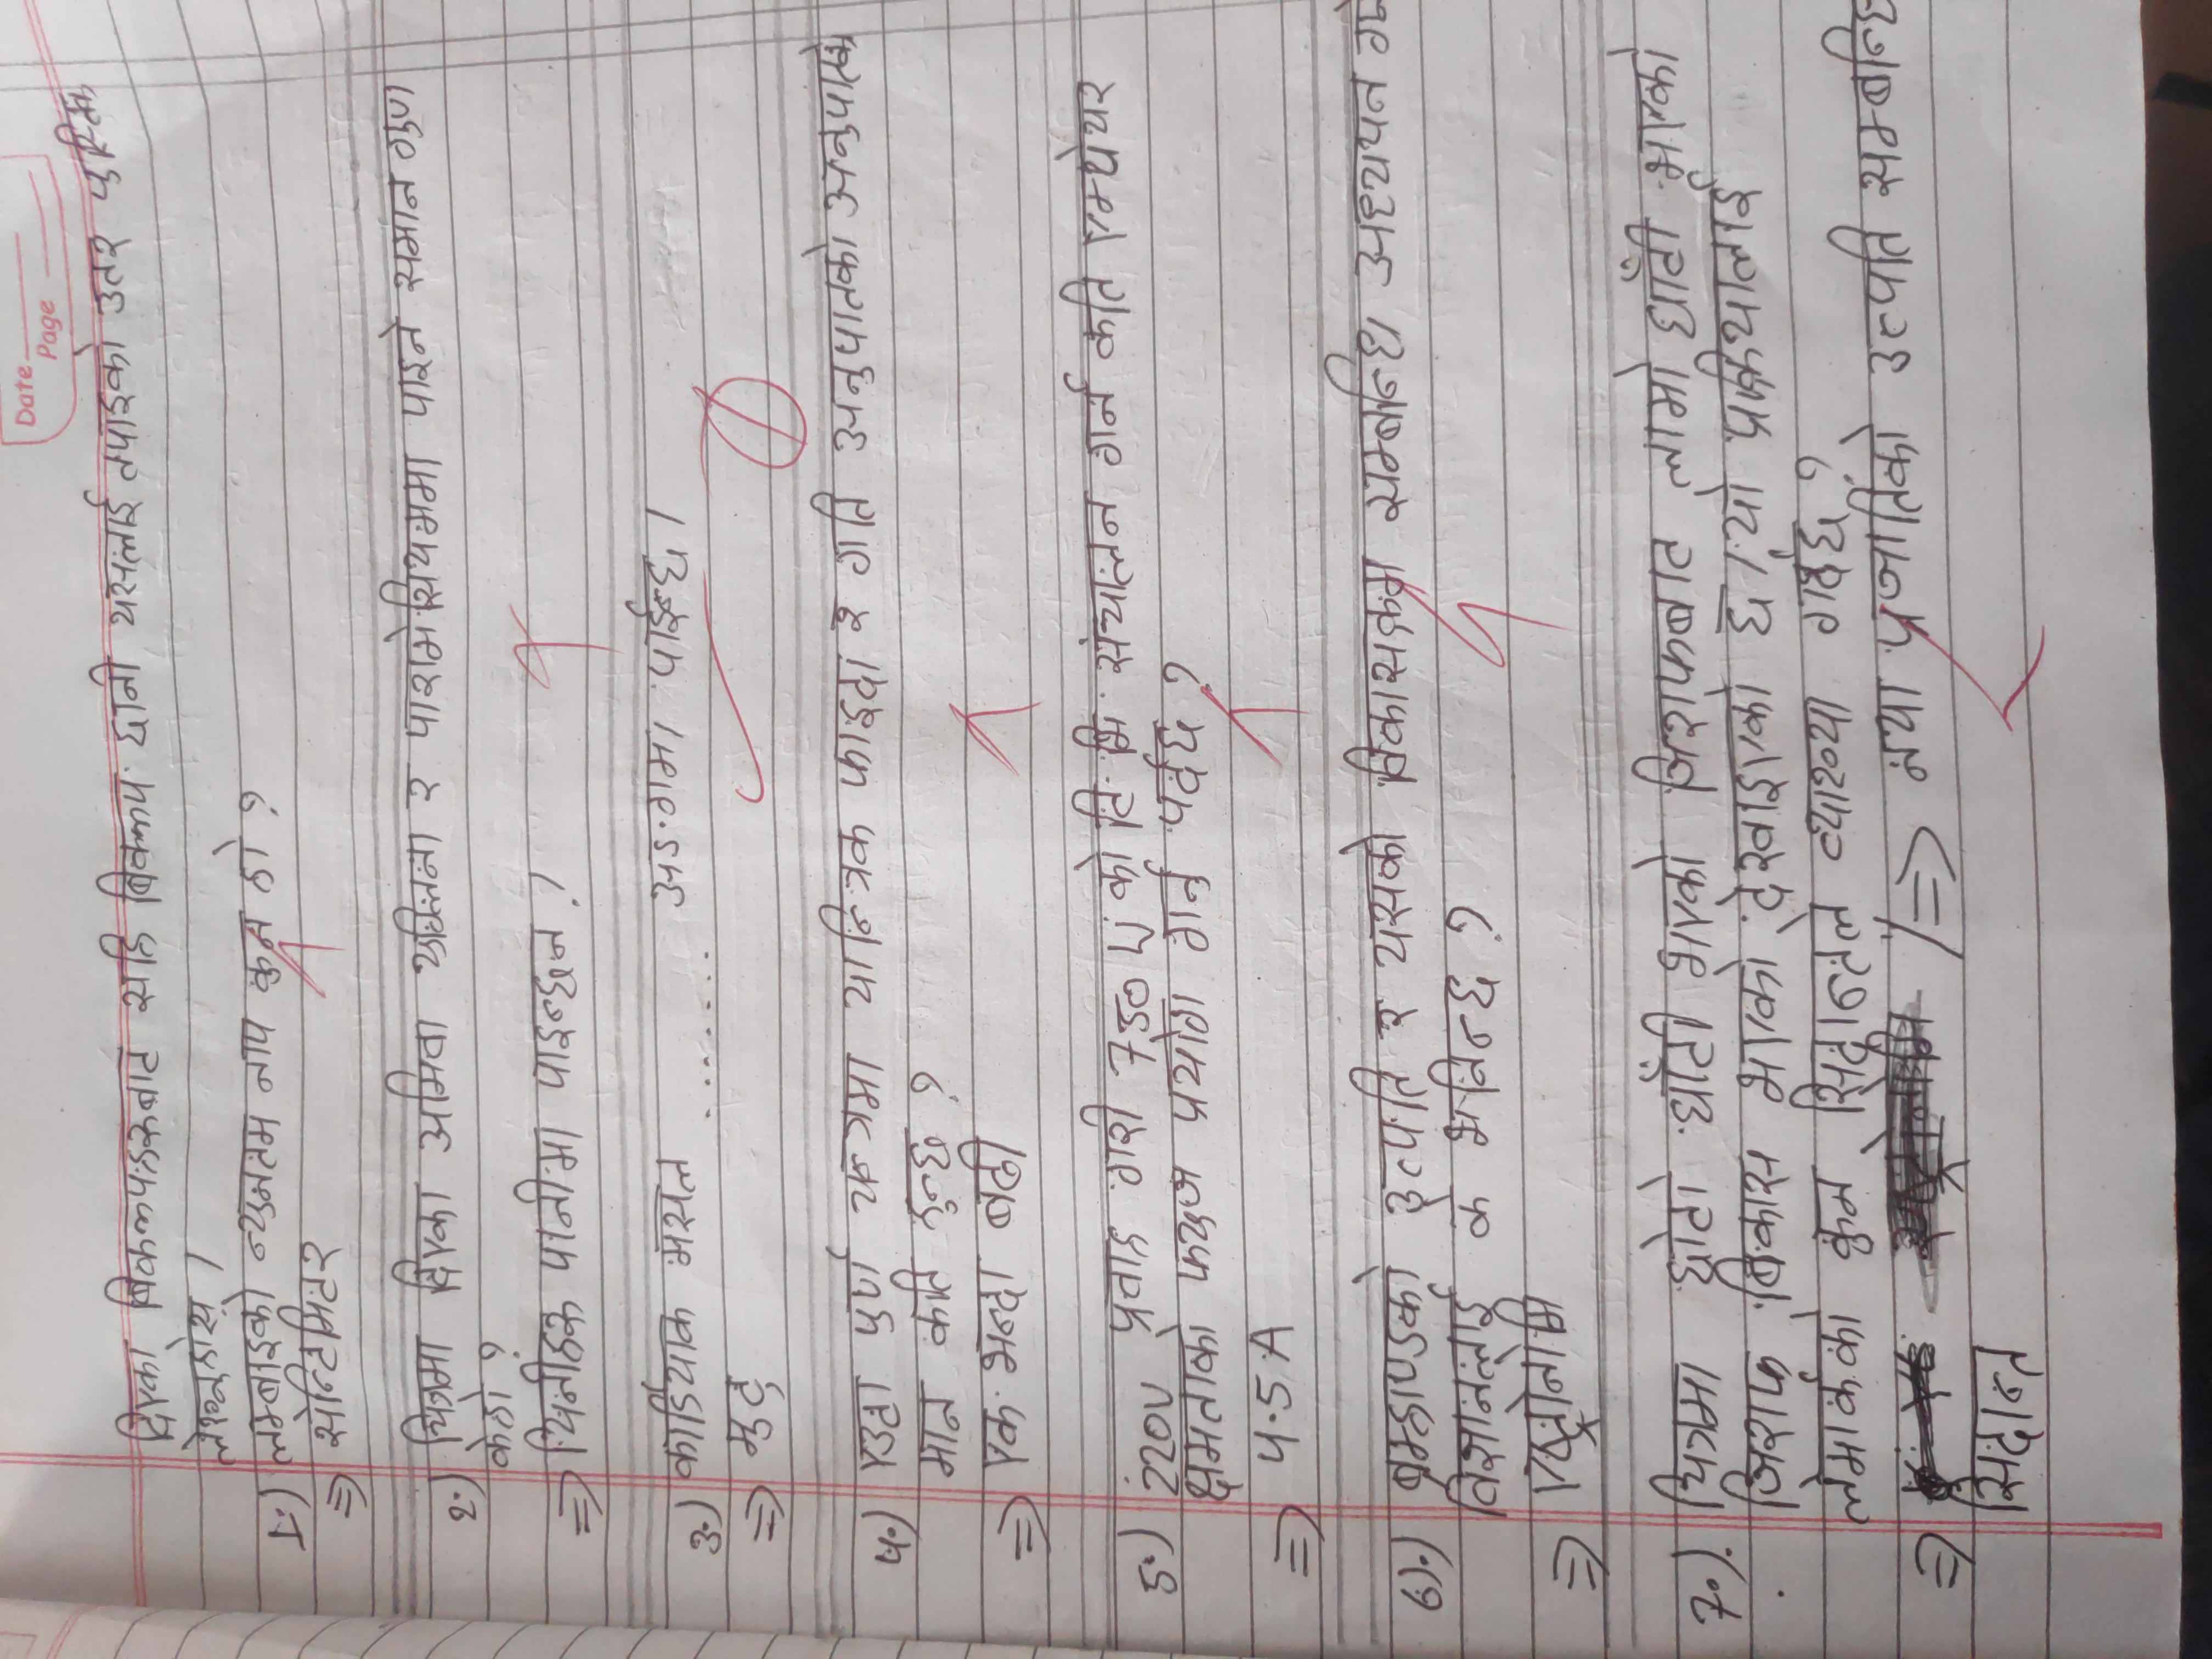 Date
Page
दिएका बिकल्पहरुबाट सहि बिकल्प छानी यसलाई तपाइको उतर पुस्तिक
लेख्नुहोस् ।
1.) लम्बाइको न्युनतम नाप कुन हो ?
⇒ सेन्टिमिटर
2.) चित्रमा दिएका अमिवा युग्लिना र पारामेसियममा पाइने समान गुण
केहो ?
⇒ यिनीहरू पानीमा पाइन्छन ।
3.) कार्डियाक मसल ....... अङगमा पाईन्छ ।
⇒ मुटु
4.) एउटा पुर्ण यन्त्रमा यान्त्रिक फाइदा र गति अनुपातको अनुपातको
मान कति हुन्छ ?
⇒ एक भन्दा बढी
5.) 220V प्रवाह गरी 750 W को टि भि संचालन गर्न कति एम्पेयर
क्षमताको फ्युज प्रयोग गर्नु पर्दछ ?
⇒ 4.5 A
6).) ब्रम्हाण्डको उत्पति र यसको विकासक्रम सम्बन्धि अध्ययन गर्ने
विज्ञानलाई के भनिन्छ ?
⇒ एष्ट्रोनोमि
7.) चित्रमा छोटो घाँटी भएको जिराफबाट लामो घाँटी भएको
जिराफ बिकास भएको देखाइएको छ । यो प्रक्रियालाई
लेमार्कको कुन सिद्दान्तले व्याख्या गर्दछ ?
⇒ ⇒ नया प्रजातिको उत्पति सम्बन्धि
सिदान्त